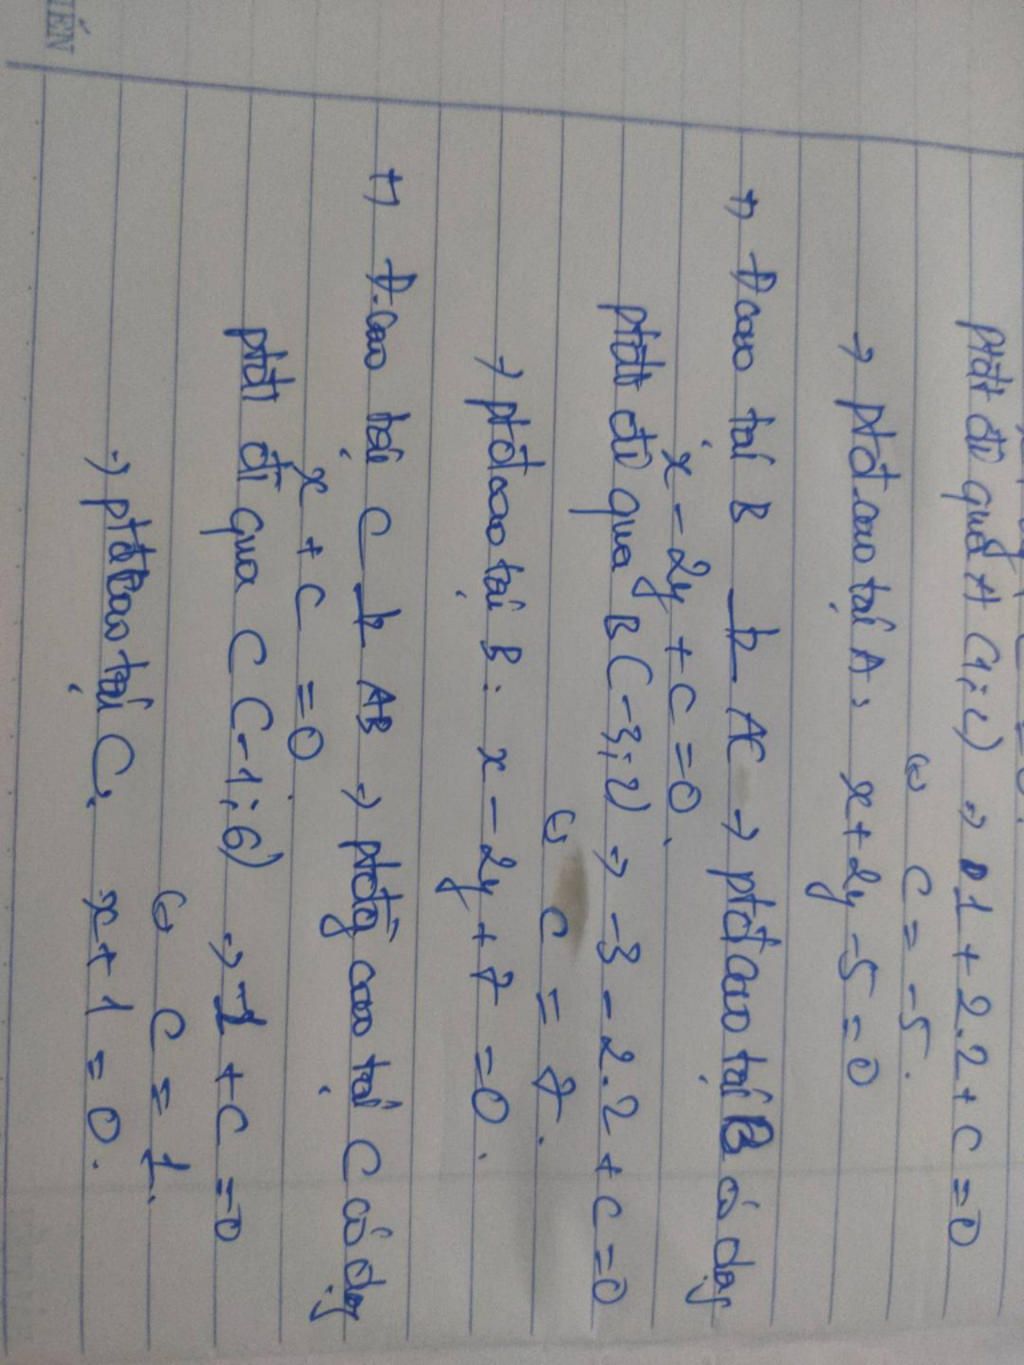 ptđt đi qua A (1; 2) => 1 + 2.2 + C = 0
(=) C = -5.
→ ptđ cao tại A: x + 2y - 5 = 0
+) Đ cao tại B ⊥ AC → ptđ cao tại B có dạng
x - 2y + C = 0.
ptđt đi qua B (-3; 2) => -3 - 2.2 + C = 0
(=) C = 7.
→ ptđ cao tại B: x - 2y + 7 = 0.
+) Đ.cao tại C ⊥ AB → ptđg cao tại C có dạng
x + C = 0.
ptđt đi qua C (-1; 6) → -1 + C = 0
(=) C = 1.
=> ptđ cao tại C: x + 1 = 0.